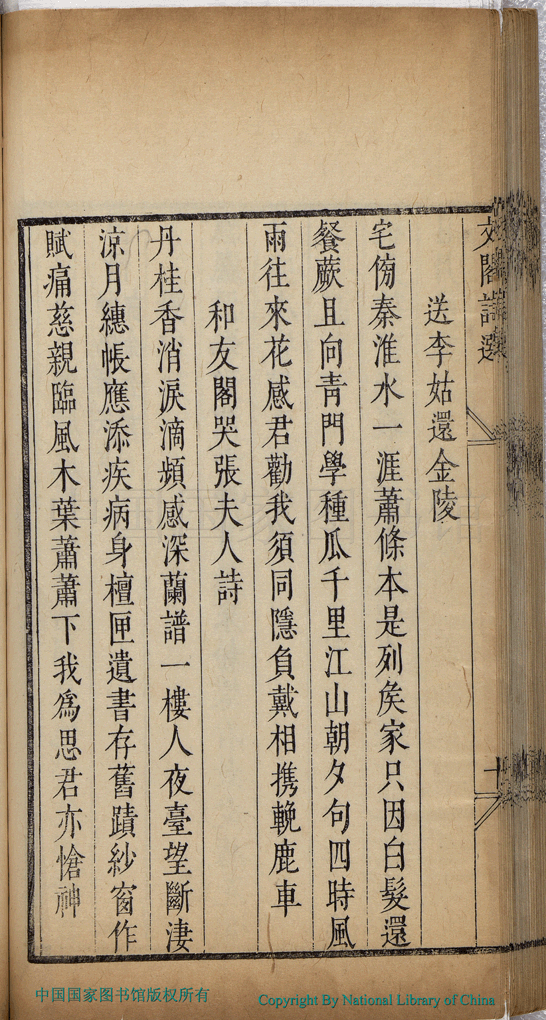 送李姑還金陵
宅傍秦淮水一涯蕭條本是列矦家只因白髮還
餐蕨且向青門學種瓜千里江山朝夕句四時風
雨往來花感君勸我須同隱負戴相携輓鹿車
和友閣哭張夫人詩
丹桂香消淚滴頻感深蘭譜一樓人夜臺望斷淒
涼月繐帳應添疾病身檀匣遺書存舊蹟紗窗作
賦痛慈親臨風木葉蕭蕭下我爲思君亦愴神
中国国家图书馆版权所有
Copyright By National Library of China